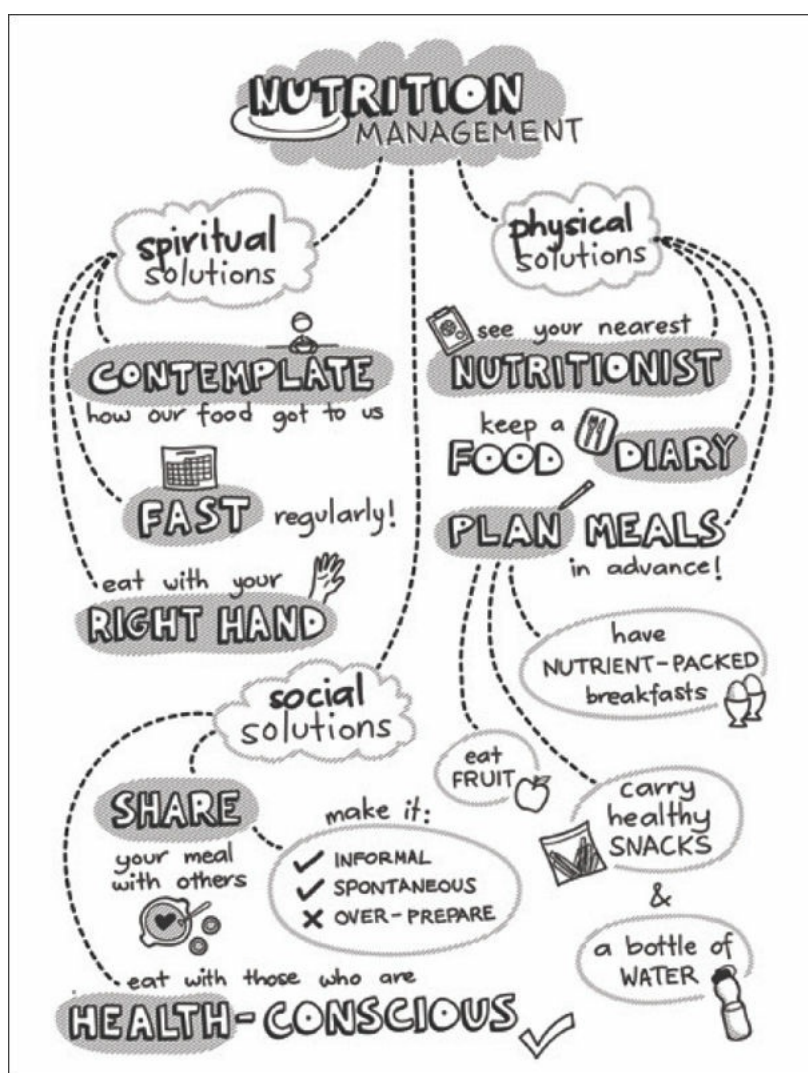 NUTRITION
MANAGEMENT
spiritual
solutions
CONTEMPLATE
how our food got to us
FAST regularly!
eat with your
RIGHT HAND
physical
solutions
see your nearest
NUTRITIONIST
keep a
FOOD DIARY
PLAN MEALS
in advance!
have
NUTRIENT-PACKED
breakfasts
eat
FRUIT
carry
healthy
SNACKS
&
a bottle of
WATER
social
solutions
SHARE
your meal
with others
make it:
✓ INFORMAL
✓ SPONTANEOUS
✗ OVER-PREPARE
eat with those who are
HEALTH-CONSCIOUS